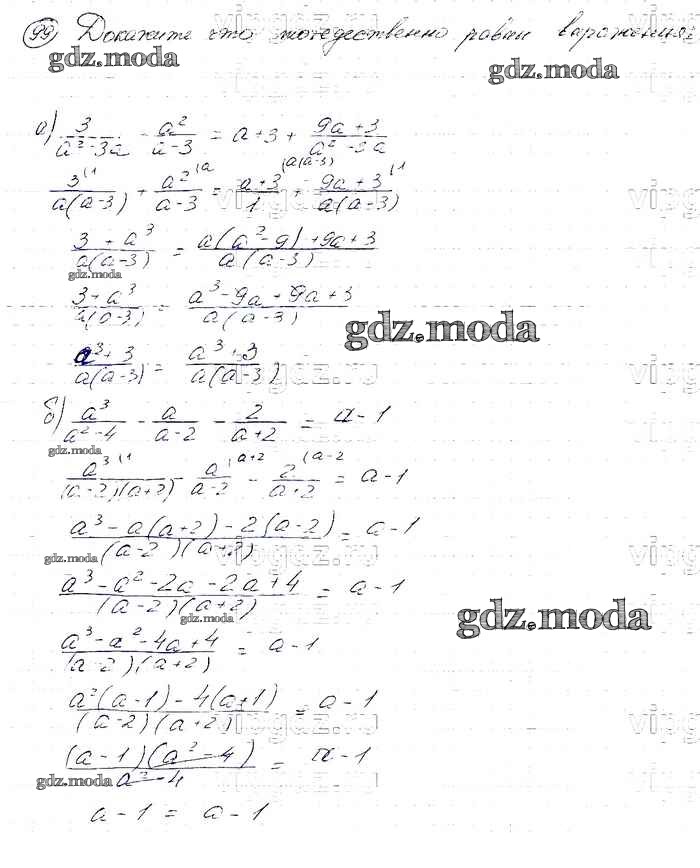 99) Докажите что тождественно равны выражения:
gdz.moda gdz.moda
а) 3/(a²-3a) - a²/(a-3) = a+3 + (9a+3)/(a²-3a)
3⁽¹/(a(a-3)) + a²⁽ᵃ/(a-3) = (a+3)⁽ᵃ⁽ᵃ⁻³⁾/1 + (9a+3)⁽¹/(a(a-3))
(3+a³)/(a(a-3)) = (a(a²-9)+9a+3)/(a(a-3))
gdz.moda
(3+a³)/(a(a-3)) = (a³-9a+9a+3)/(a(a-3))
gdz.moda
(a³+3)/(a(a-3)) = (a³+3)/(a(a-3))
б) a³/(a²-4) - a/(a-2) - 2/(a+2) = a-1
gdz.moda
a³⁽¹/((a-2)(a+2)) - a⁽ᵃ⁺²/(a-2) - 2⁽ᵃ⁻²/(a+2) = a-1
(a³-a(a+2)-2(a-2))/((a-2)(a+2)) = a-1
gdz.moda
(a³-a²-2a-2a+4)/((a-2)(a+2)) = a-1
gdz.moda gdz.moda
(a³-a²-4a+4)/((a-2)(a+2)) = a-1
(a²(a-1)-4(a+1))/((a-2)(a+2)) = a-1
vipgdz.ru
((a-1)(a²-4))/(a²-4) = a-1
gdz.moda
a-1 = a-1